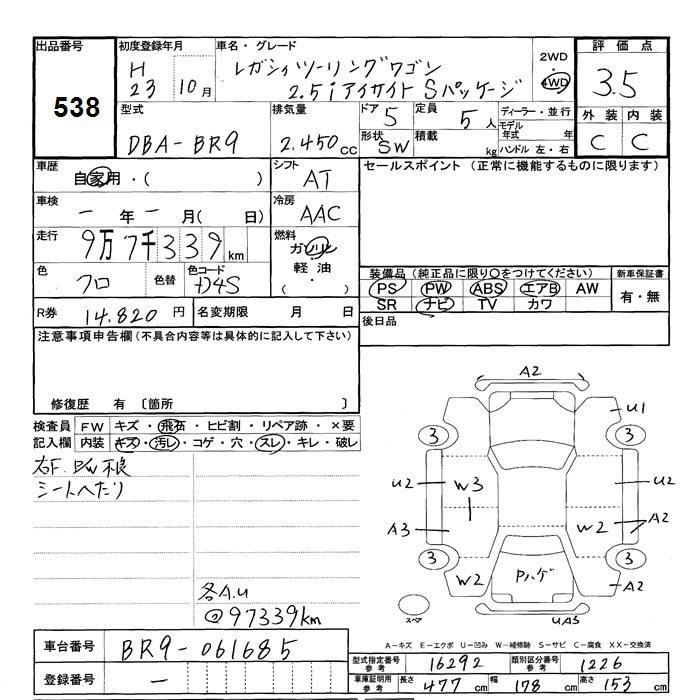 出品番号
538
初度登録年月
H
23 10月
車名・グレード
レガシィツーリングワゴン
2.5iアイサイトSパッケージ
2WD
・
4WD
評価点
3.5
外装 内装
C C
型式
DBA-BR9
排気量
2.450cc
ドア 5
形状 SW
定員 5人
積載 kg
ディーラー・並行
モデル年式 年
ハンドル 左・右
車歴
自家用・( )
シフト
AT
車検
一年一月( 日)
冷房
AAC
走行
9万7千339km
燃料
ガソリン
軽油
・( )
色
クロ
色替
色コード
D4S
R券 14.820円
名変期限 月 日
セールスポイント (正常に機能するものに限ります)
装備品(純正品に限り○をつけてください)
PS PW ABS エアB AW
SR ナビ TV カワ
新車保証書
有・無
後日品
注意事項申告欄(不具合内容等は具体的に記入して下さい)
修復歴 有 〔箇所 〕
検査員記入欄
FW キズ・飛石・ヒビ割・リペア跡・×要
内装 キズ・汚レ・コゲ・穴・スレ・キレ・破レ
右F.P/W不良
シートへたり
各A.U
@97339km
A2
U1
3 3
U2 W3 U2
A3 W2 A2
3 3
W2 Pハゲ A2
スペア
UA3
A-キズ E-エクボ U-凹み W-補修跡 S-サビ C-腐食 XX-交換済
車台番号 BR9-061685
登録番号 -
型式指定番号参考 16292
類別区分番号参考 1226
車庫証明用参考
長さ 477cm 幅 178cm 高さ 153cm